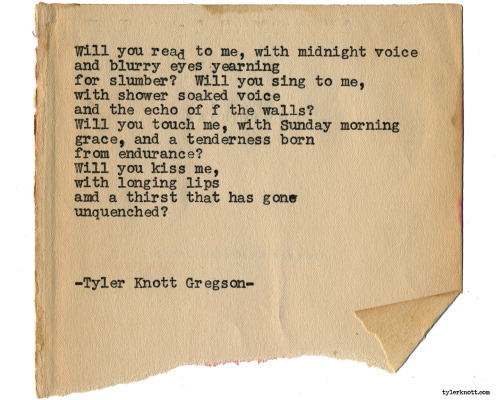 Will you read to me, with midnight voice
and blurry eyes yearning
for slumber?  Will you sing to me,
with shower soaked voice
and the echo of f the walls?
Will you touch me, with Sunday morning
grace, and a tenderness born
from endurance?
Will you kiss me,
with longing lips
amd a thirst that has gone
unquenched?
-Tyler Knott Gregson-
tylerknott.com